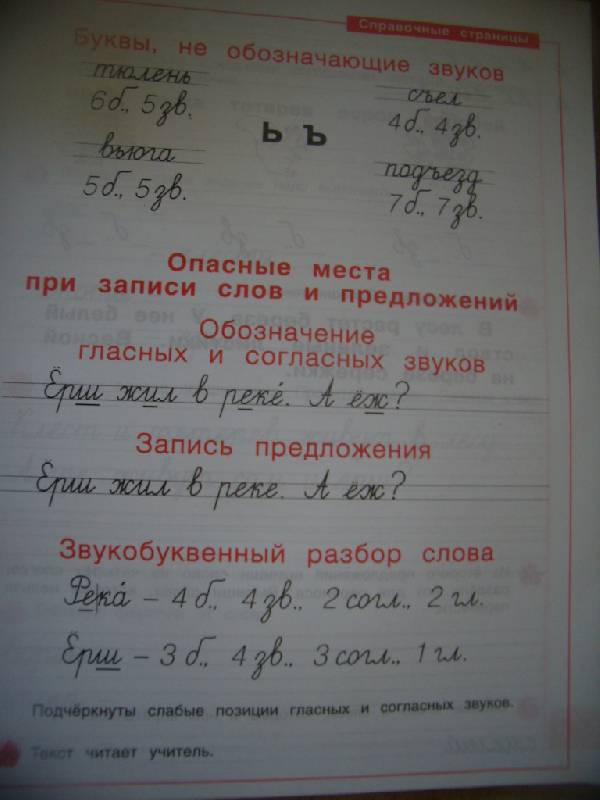 Справочные страницы
Буквы, не обозначающие звуков
тюлень
6 б., 5 зв.
съел
4 б., 4 зв.
Ь Ъ
вьюга
5 б., 5 зв.
подъезд
7 б., 7 зв.
Опасные места
при записи слов и предложений
Обозначение
гласных и согласных звуков
Ёрш жил в реке́. А ёж?
Запись предложения
Ёрш жил в реке. А ёж?
Звукобуквенный разбор слова
Река́ – 4 б., 4 зв., 2 согл., 2 гл.
Ёрш – 3 б., 4 зв., 3 согл., 1 гл.
Подчёркнуты слабые позиции гласных и согласных звуков.
Текст читает учитель.